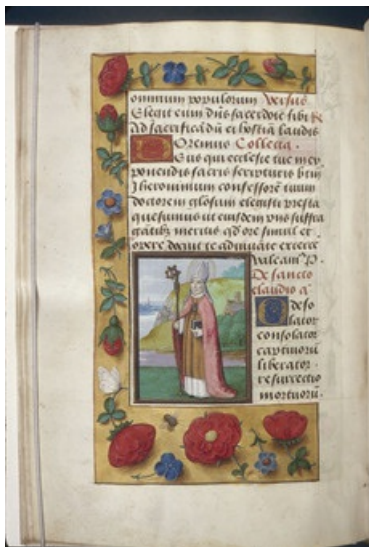 omnium populorum Versus
Elegit eum dūs sacerdotē sibi R
Ad sacrificādū ei hostiā laudis
Oremus Collecta.
eus qui ecclesie tue in ex
ponendis sacris scripturis btm
Jheronimum confessorē tuum
doctorem gl'osum elegisti presta
quesumus ut eiusdem suffra
gātibz meritis qd ore simul et
opere docuit te adiuvāte exercere
valeam9 P.
De sancto
claudio a
deso
lator
consolator
captiuorū
liberator
resurrectio
mortuorū.